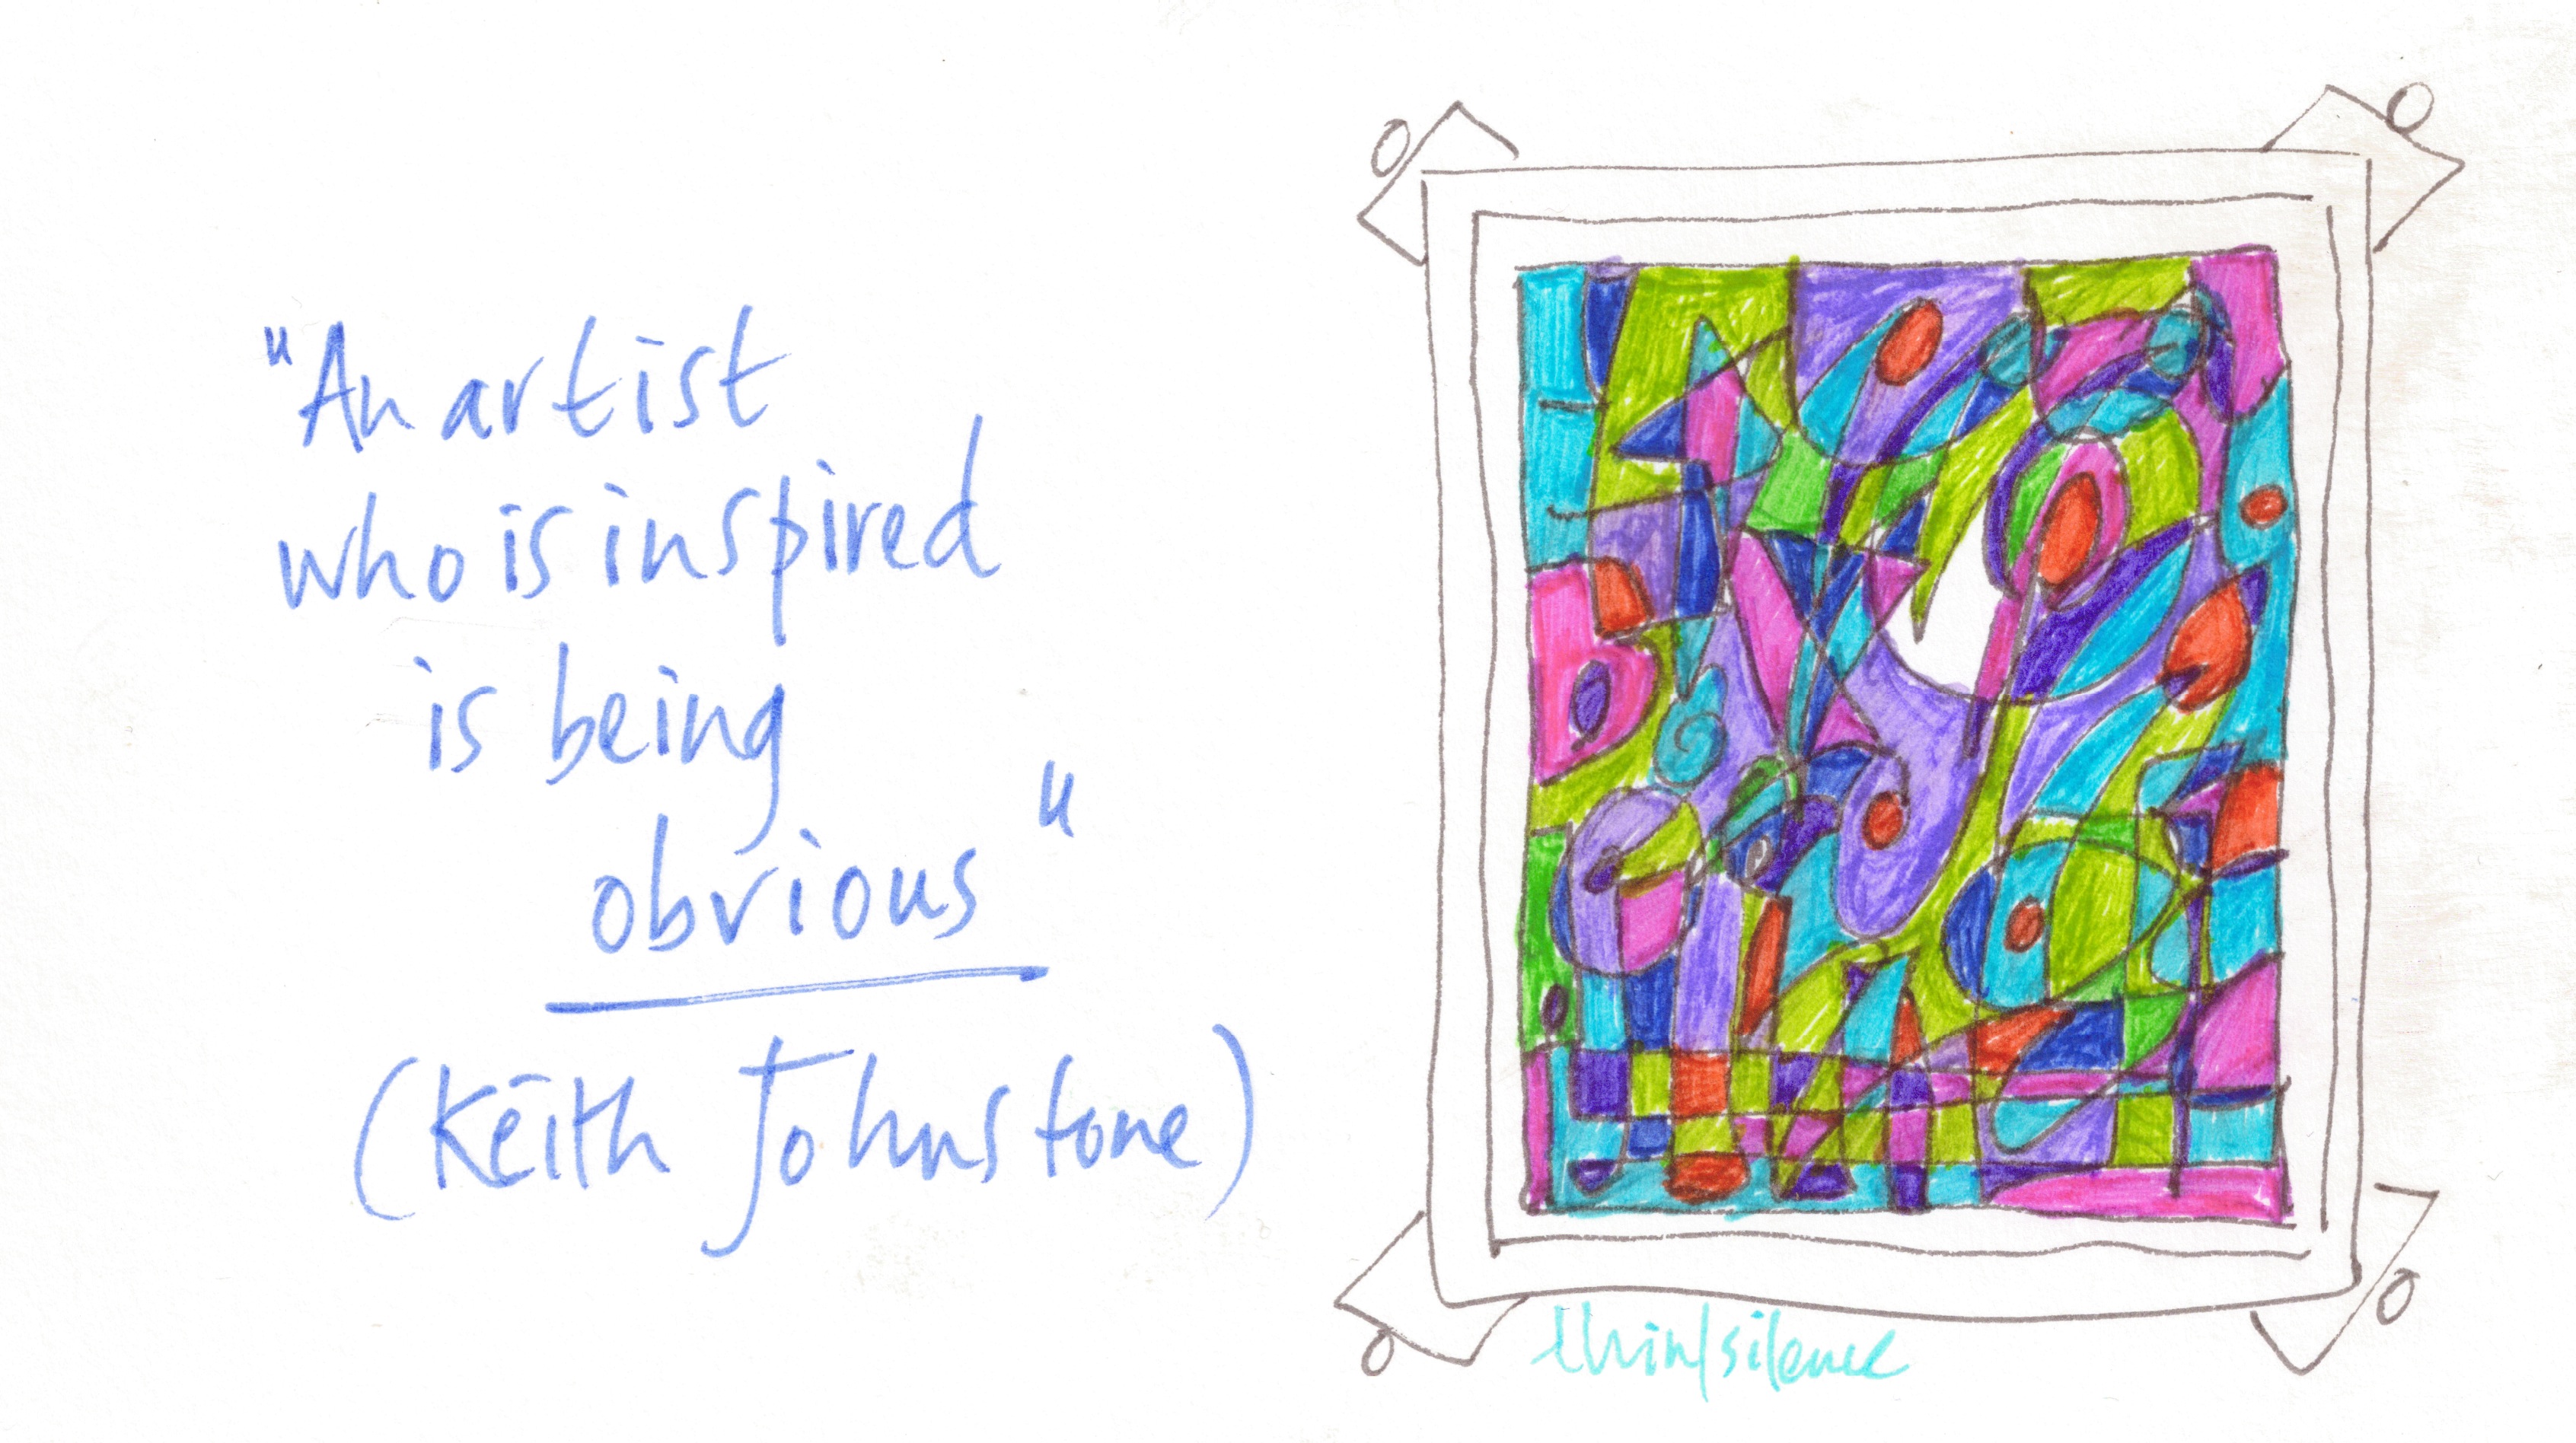 "An artist
who is inspired
is being
obvious"
(Keith Johnstone)
thin/silence